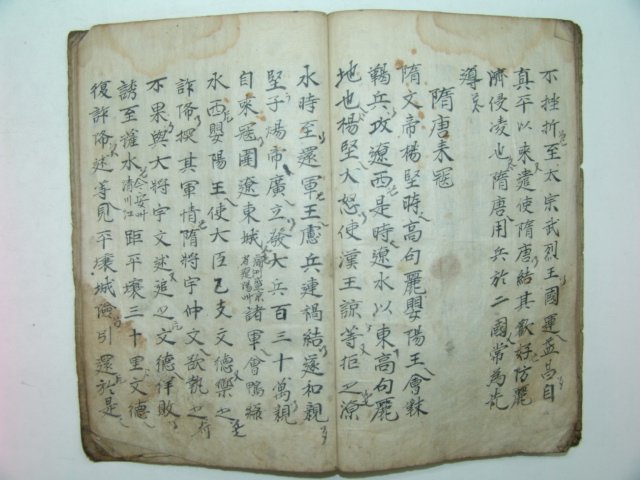 不挫折至太宗武烈王國運益昌自
眞平以來遣使隋唐結其歡好防麗
濟侵凌也隋唐用兵於二國常爲先
導
隋唐來寇
隋文帝楊堅時高句麗嬰陽王會靺
鞨兵攻遼西是時遼水以東高句麗
地也楊堅大怒使漢王諒等拒之潦
水時至還軍王慮兵連禍結遂和親
堅子煬帝廣立發大兵百三十萬親
自來寇圍遼東城 諸軍會鴨綠
水西嬰陽王使大臣乙支文德樂之
詐降探其軍情隋將宇仲文欲執之
不果與大將宇文述追之文德佯敗
誘至薩水 今安州淸川江 距平壤三十里文德
復詐降述等見平壤城險引還於是